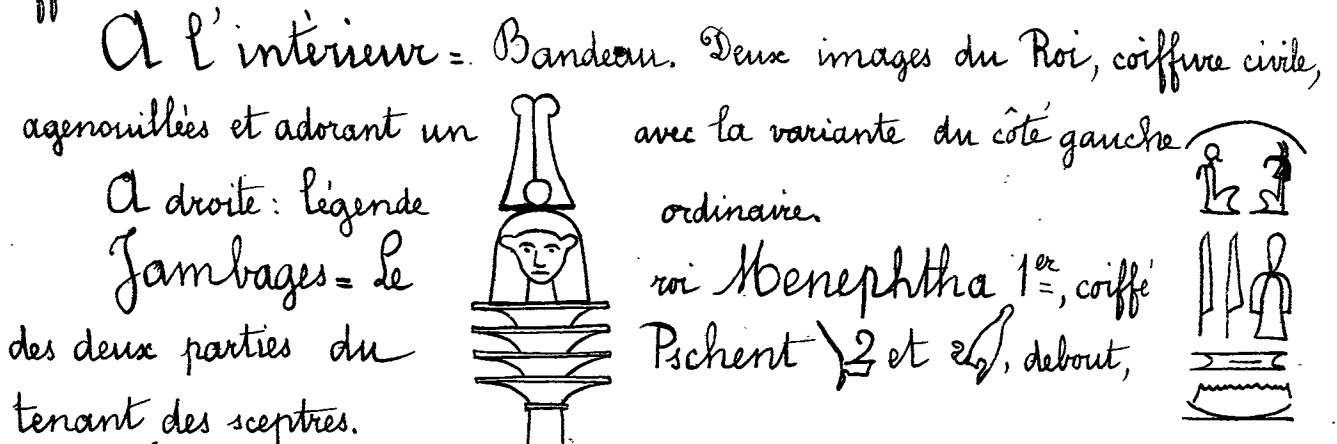 A l'intérieur = Bandeau. Deux images du Roi, coiffure civile,
agenouillées et adorant un avec la variante du côté gauche
A droite : légende ordinaire.
Jambages = Le roi Menephtha 1er, coiffé
des deux parties du Pschent et , debout,
tenant des sceptres.